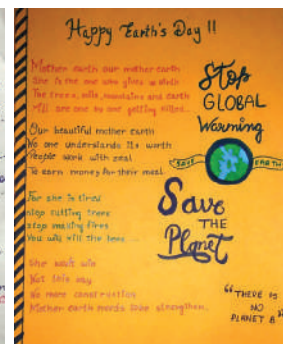 Happy Earth's Day !!
Mother earth our mother earth
She is the one who gives us birth
The trees, hills, mountains and earth
All are one by one getting killed...
Our beautiful mother earth
No one understands its worth
People work with zeal
To earn money for their meal.
For she is tired
stop cutting trees
stop making fires
You will kill the bees...
She won't win
Not this way
No more construction
Mother earth needs some strengthen.
Stop
GLOBAL
Warming
SAVE EARTH
Save
THE
Planet
"THERE IS
NO
PLANET B"